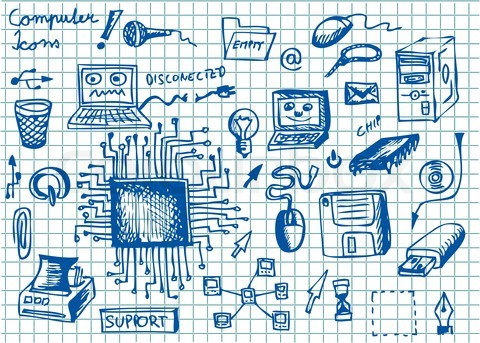 Computer
Icons
!
EMPTY
@
DISCONECTED
CHIP
SUPPORT